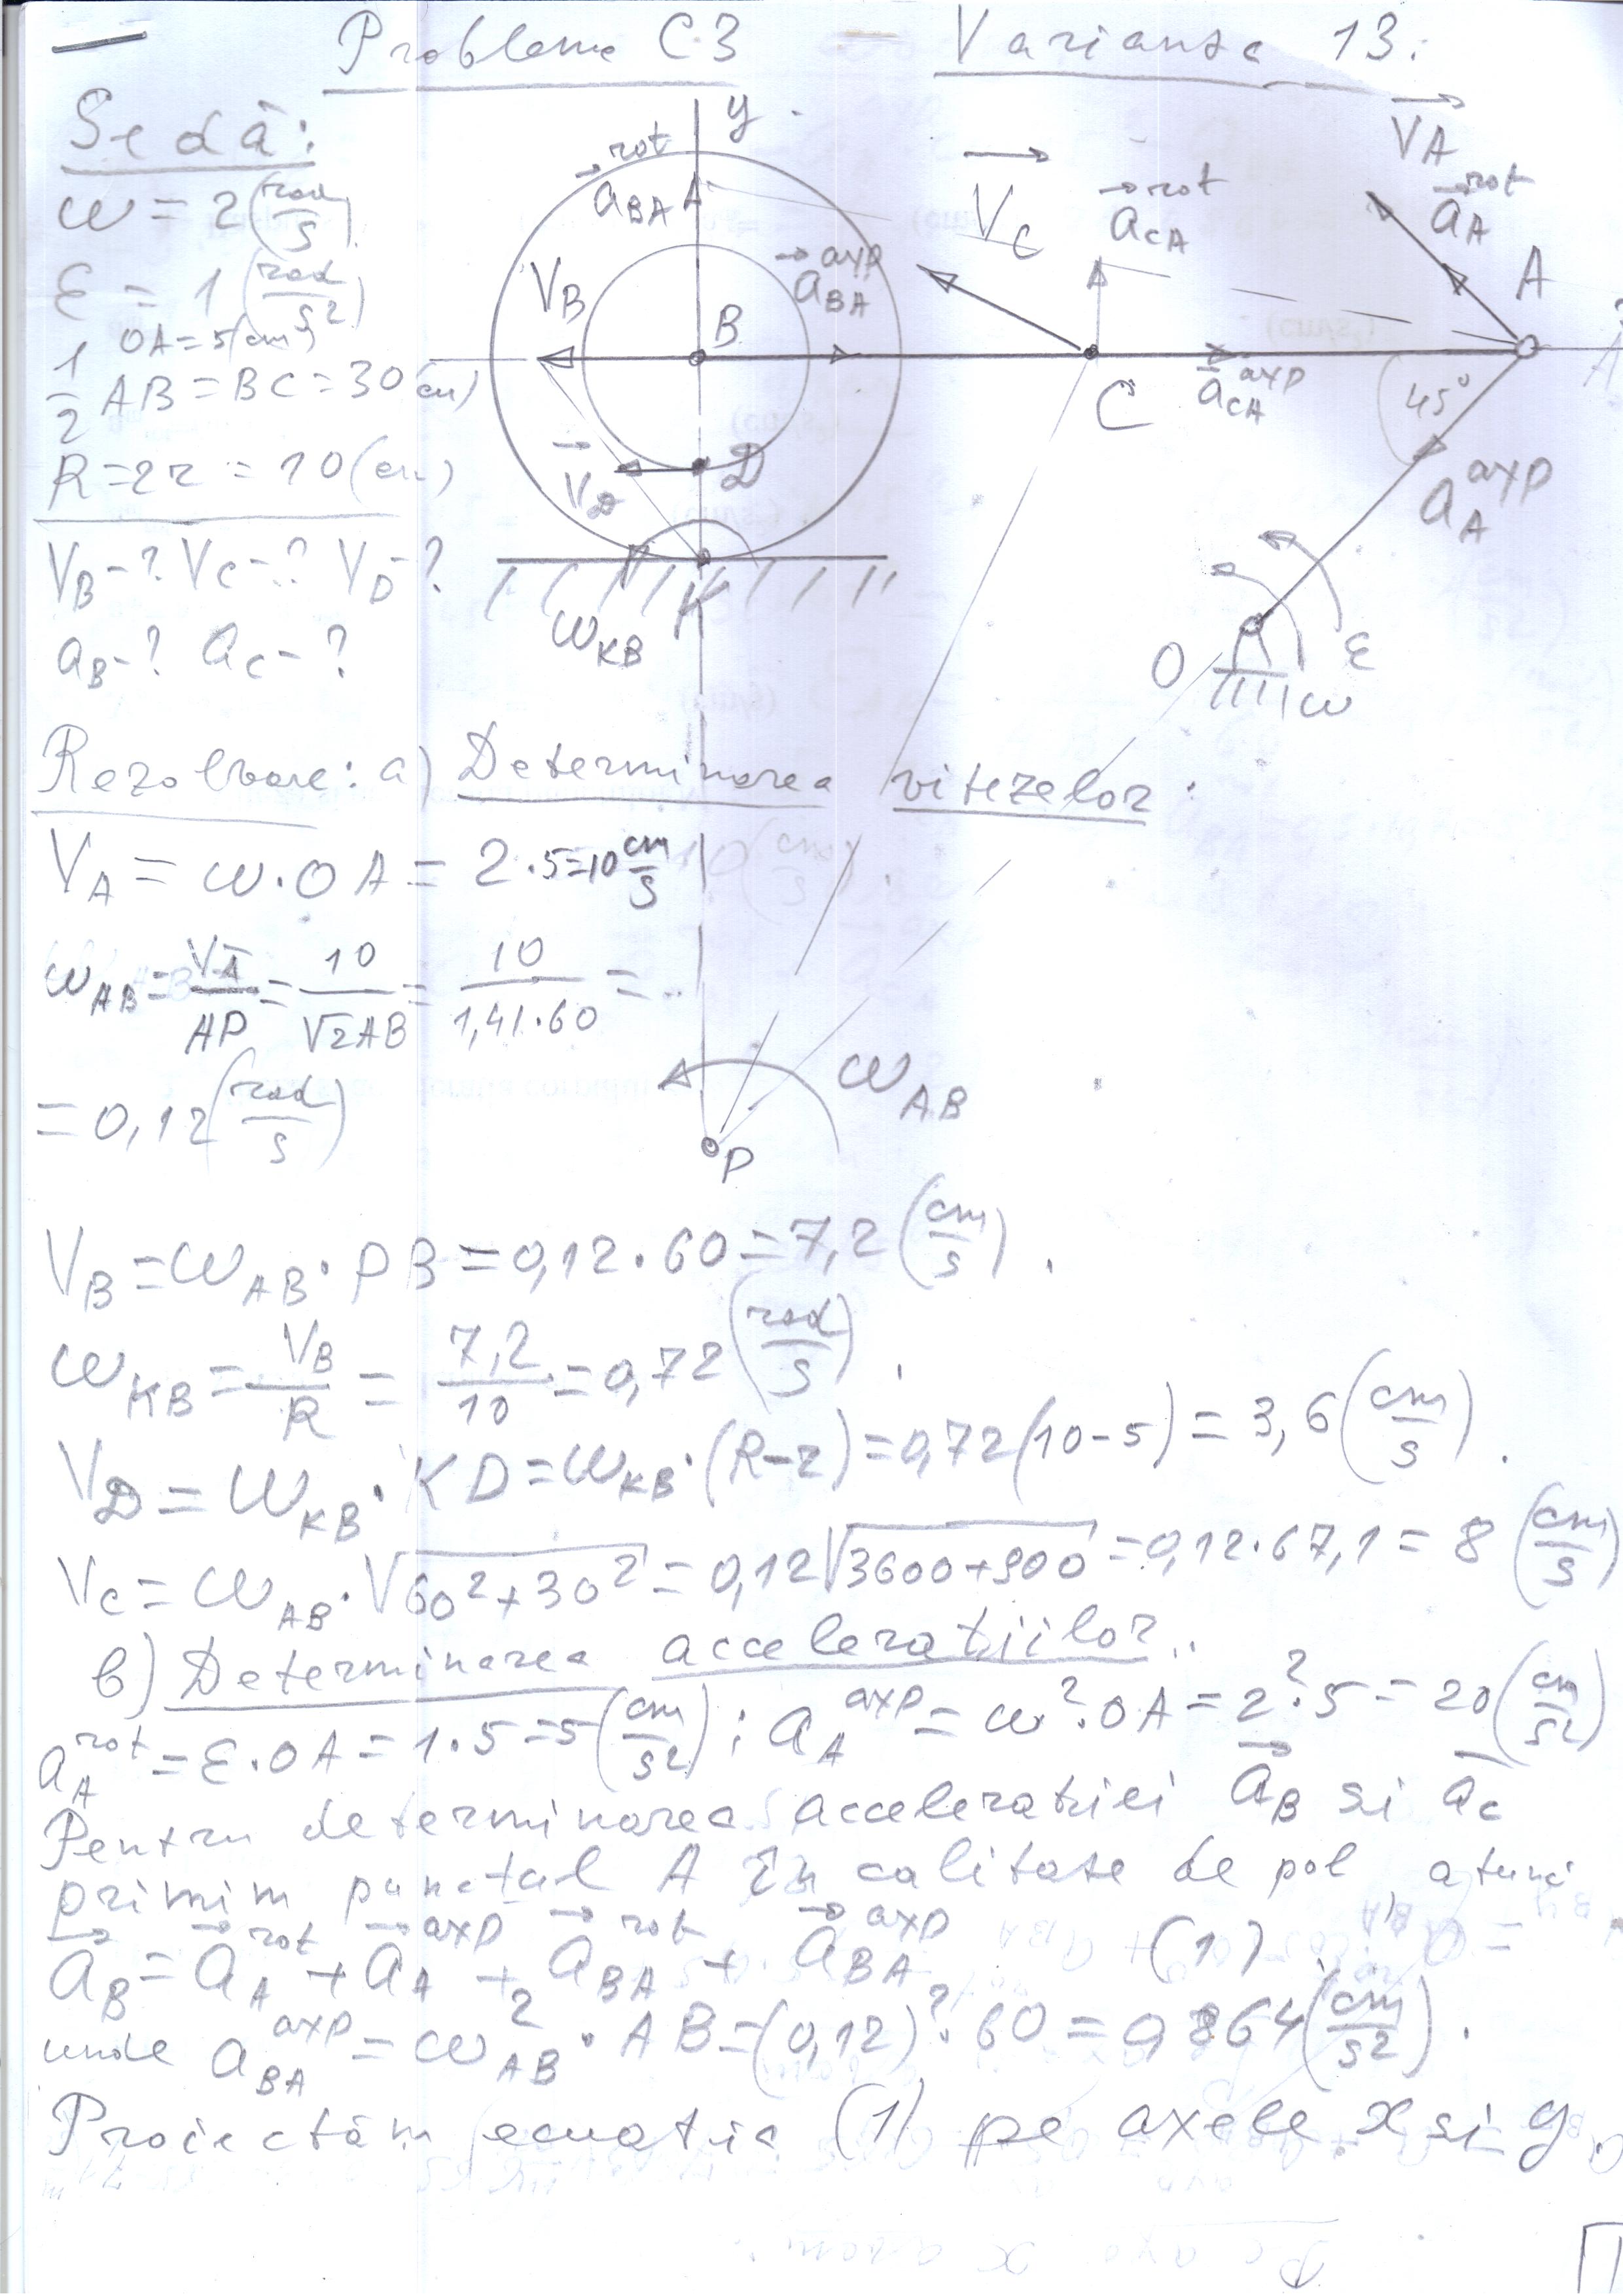 Problema C3 — Varianta 13:
Se dă:
ω = 2 (rad/s)
ε = 1 (rad/s²)
OA = 5 (cm)
1/2 AB = BC = 30 (cm)
R = 2r = 10 (cm)
V_B - ? V_C - ? V_D - ?
a_B - ? a_C - ?
y
a_BA^rot
a_BA^axp
V_B
B
V_D
D
K
ω_KB
V_C
a_CA^rot
C
a_CA^axp
V_A
a_A^rot
A
45°
a_A^axp
O
ε
ω
Rezolvare: a) Determinarea vitezelor:
V_A = ω·OA = 2·5=10 cm/s
ω_AB = V_A/AP = 10/√2AB = 10/1,41·60 =
= 0,12 (rad/s)
ω_AB
P
V_B = ω_AB·PB = 0,12·60 = 7,2 (cm/s).
ω_KB = V_B/R = 7,2/10 = 0,72 (rad/s).
V_D = ω_KB·KD = ω_KB·(R-r) = 0,72(10-5) = 3,6 (cm/s).
V_C = ω_AB·√60²+30² = 0,12√3600+900 = 0,12·67,1 = 8 (cm/s)
b) Determinarea acceleratiilor.
a_A^rot = ε·OA = 1·5=5 (cm/s²); a_A^axp = ω²·OA = 2²·5 = 20 (cm/s²)
Pentru determinarea acceleratiei a_B si a_C
primim punctul A în calitate de pol, atunci
a_B = a_A^rot + a_A^axp + a_BA^rot + a_BA^axp (1)
unde a_BA^axp = ω_AB²·AB = (0,12)²·60 = 0,864 (cm/s²).
Proiectăm ecuatia (1) pe axele x si y.